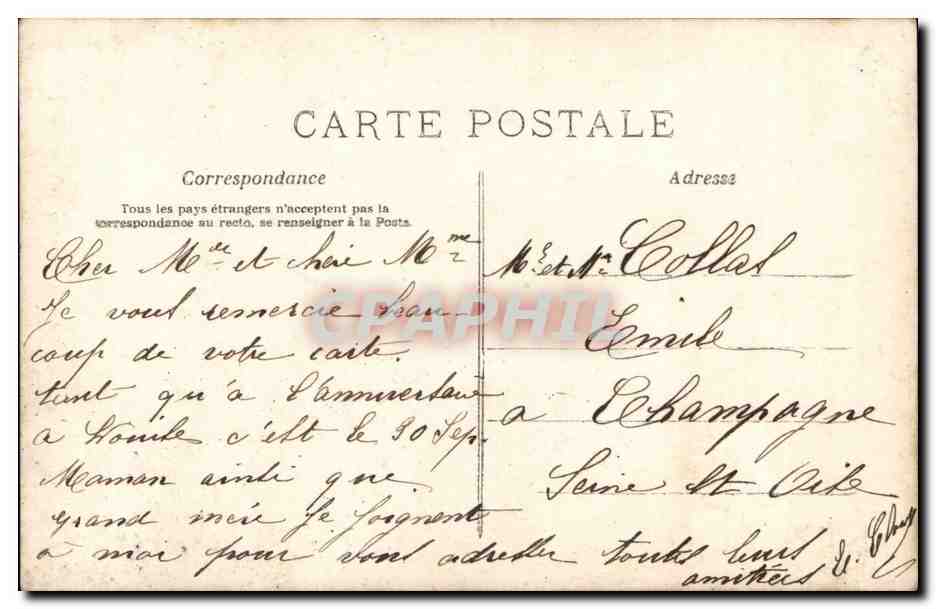 CARTE POSTALE
Correspondance
Tous les pays étrangers n'acceptent pas la
correspondance au recto, se renseigner à la Poste.
Cher Mr de et chère Mme
Je vous remercie beau-
coup de votre carte.
tant qu'a l'anniversaire
à Louise c'est le 30 Sep.
Maman ainsi que
grand mère se joignent
à moi pour vous adresser toutes leurs
amitiées
Adresse
Mr et Me Collas
Emile
a Champagne
Seine et Oise
CPAPHIL